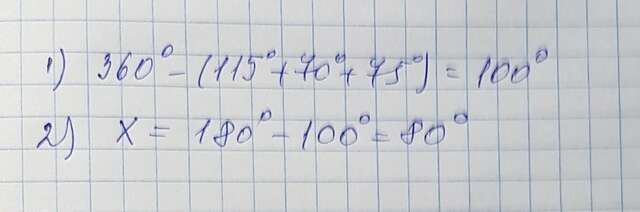 1) 360° - (115° + 70° + 75°) = 100°
2) x = 180° - 100° = 80°